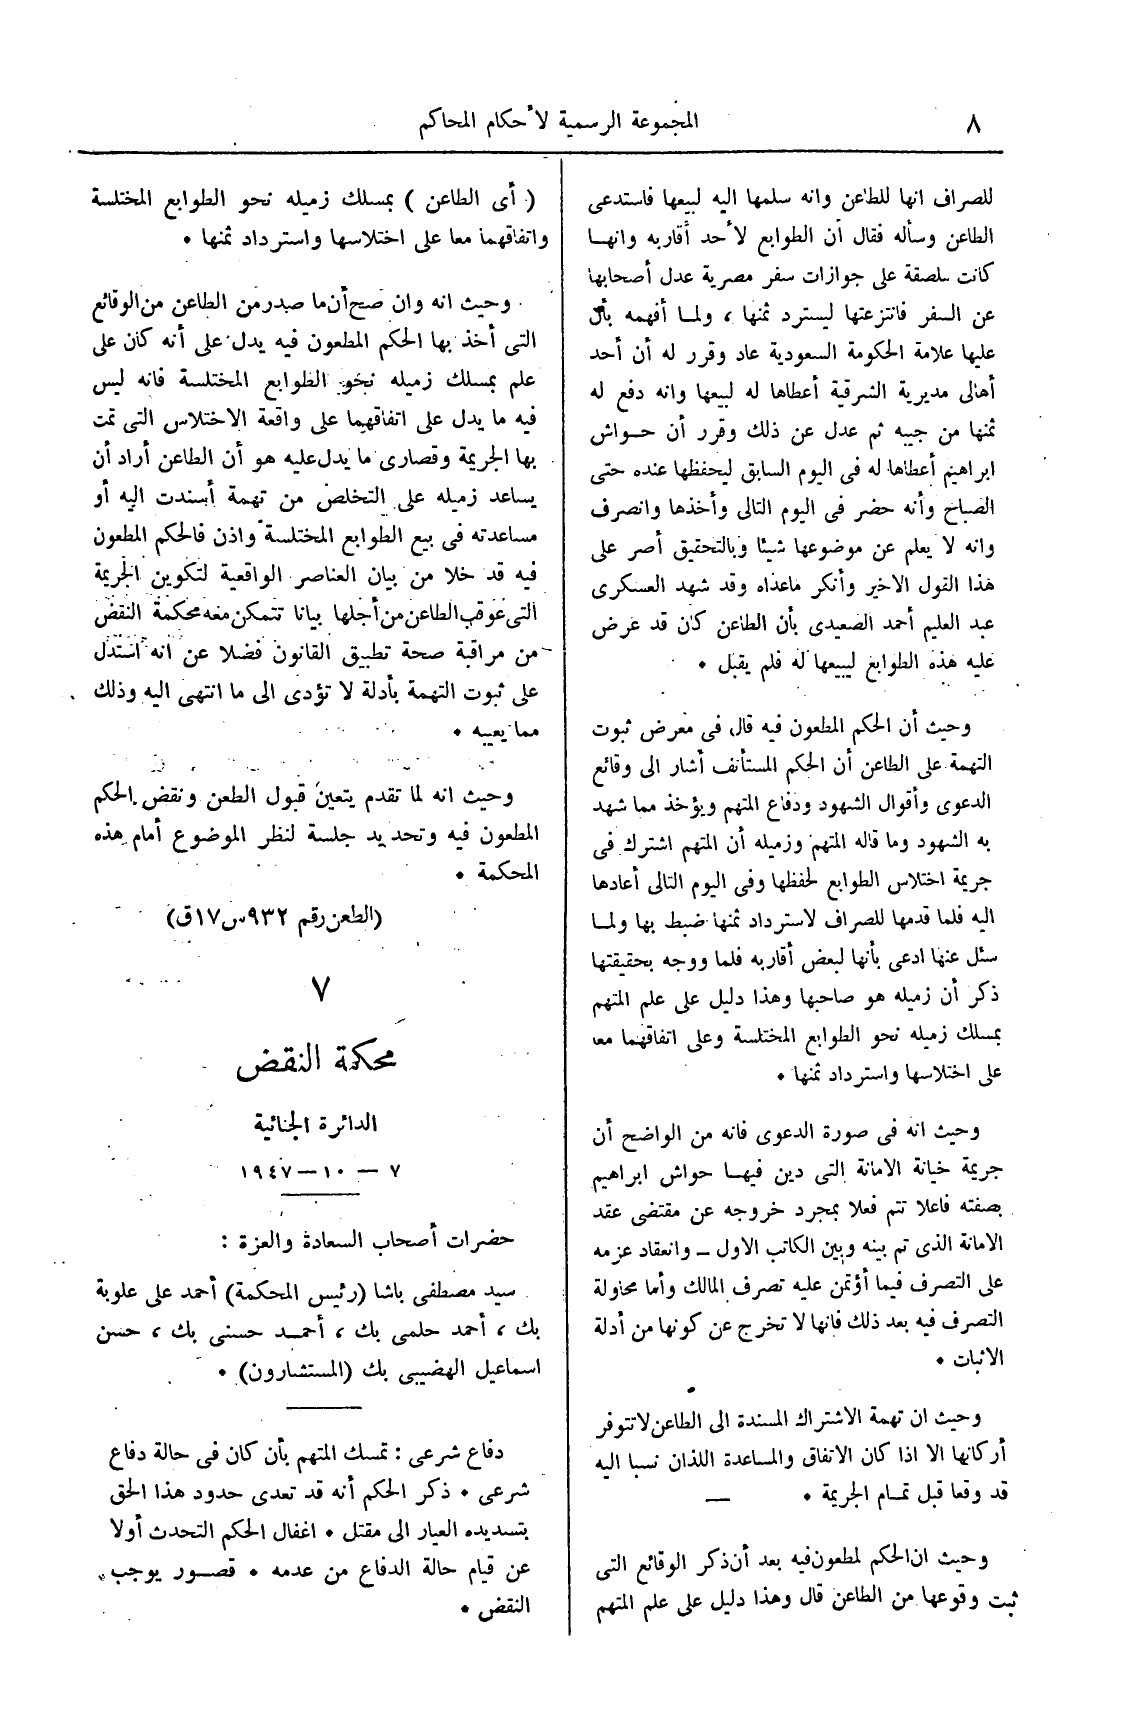 ٨
المجموعة الرسمية لأحكام المحاكم
للصراف انها للطاعن وانه سلمها اليه لبيعها فاستدعى
الطاعن وسأله فقال أن الطوابع لأحد أقاربه وانهـا
كانت ملصقة على جوازات سفر مصرية عدل أصحابها
عن السفر فانتزعتها ليسترد ثمنها ، ولمـا أفهمه بأن
عليها علامة الحكومة السعودية عاد وقرر له أن أحد
أهالى مديرية الشرقية أعطاها له لبيعها وانه دفع له
ثمنها من جيبه ثم عدل عن ذلك وقرر أن حـواش
ابراهيم أعطاها له فى اليوم السابق ليحفظها عنده حتى
الصباح وأنه حضر فى اليوم التالى وأخذها وانصرف
وانه لا يعلم عن موضوعها شيئا وبالتحقيق أصر على
هذا القول الاخير وأنكر ماعداه وقد شهد العسكرى
عبد العليم أحمد الصعيدى بأن الطاعن كان قد عرض
عليه هذه الطوابع ليبيعها له فلم يقبل •
وحيث أن الحكم المطعون فيه قال فى معرض ثبوت
التهمة على الطاعن أن الحكم المستأنف أشار الى وقائع
الدعوى وأقوال الشهود ودفاع المتهم ويؤخذ مما شهد
به الشهود وما قاله المتهم وزميله أن المتهم اشترك فى
جريمة اختلاس الطوابع لحفظها وفى اليوم التالى أعادها
اليه فلما قدمها للصراف لاسترداد ثمنها ضبط بها ولمـا
سئل عنها ادعى بأنها لبعض أقاربه فلما ووجه بحقيقتها
ذكر أن زميله هو صاحبها وهذا دليل على علم المتهم
بمسلك زميله نحو الطوابع المختلسة وعلى اتفاقهما معا
على اختلاسها واسترداد ثمنها •
وحيث انه فى صورة الدعوى فانه من الواضح أن
جريمة خيانة الامانة التى دين فيهـا حواش ابراهيم
بصفته فاعلا تتم فعلا بمجرد خروجه عن مقتضى عقد
الامانة الذى تم بينه وبين الكاتب الاول – وانعقاد عزمه
على التصرف فيما أؤتمن عليه تصرف المالك وأما محاولة
التصرف فيه بعد ذلك فانها لا تخرج عن كونها من أدلة
الاثبات •
وحيث ان تهمة الاشتراك المسندة الى الطاعن لا تتوفر
أركانها الا اذا كان الاتفاق والمساعدة اللذان نسبا اليه
قد وقعا قبل تمـام الجريمة • —
وحيث ان الحكم لمطعون فيه بعد أن ذكر الوقائع التى
ثبت وقوعها من الطاعن قال وهذا دليل على علم المتهم
( أى الطاعن ) بمسلك زميله نحو الطوابع المختلسة
واتفاقهما معا على اختلاسها واسترداد ثمنها •
وحيث انه وان صح أن ما صدر من الطاعن من الوقائع
التى أخذ بها الحكم المطعون فيه يدل على أنه كان على
علم بمسلك زميله نحو الطوابع المختلسة فانه ليس
فيه ما يدل على اتفاقهما على واقعة الاختلاس التى تمت
بها الجريمة وقصارى ما يدل عليه هو أن الطاعن أراد أن
يساعد زميله على التخلص من تهمة أسندت اليه أو
مساعدته فى بيع الطوابع المختلسة واذن فالحكم المطعون
فيه قد خلا من بيان العناصر الواقعية لتكوين الجريمة
التى عوقب الطاعن من أجلها بيانا تتمكن معه محكمة النقض
من مراقبة صحة تطبيق القانون فضلا عن انه استدل
على ثبوت التهمة بأدلة لا تؤدى الى ما انتهى اليه وذلك
مما يعيبه •
وحيث انه لما تقدم يتعين قبول الطعن ونقض الحكم
المطعون فيه وتحديد جلسة لنظر الموضوع أمام هذه
المحكمة •
(الطعن رقم ٩٣٢ س ١٧ ق)
٧
محكمة النقض
الدائرة الجنائية
٧ – ١٠ – ١٩٤٧
حضرات أصحاب السعادة والعزة :
سيد مصطفى باشا (رئيس المحكمة) أحمد على علوبة
بك ، أحمد حلمى بك ، أحمـد حسنى بك ، حسن
اسماعيل الهضيبى بك (المستشارون) •
دفاع شرعى : تمسك المتهم بأن كان فى حالة دفاع
شرعى • ذكر الحكم أنه قد تعدى حدود هذا الحق
بتسديده العيار الى مقتل • اغفال الحكم التحدث أولا
عن قيام حالة الدفاع من عدمه • قصـور يوجب
النقض •